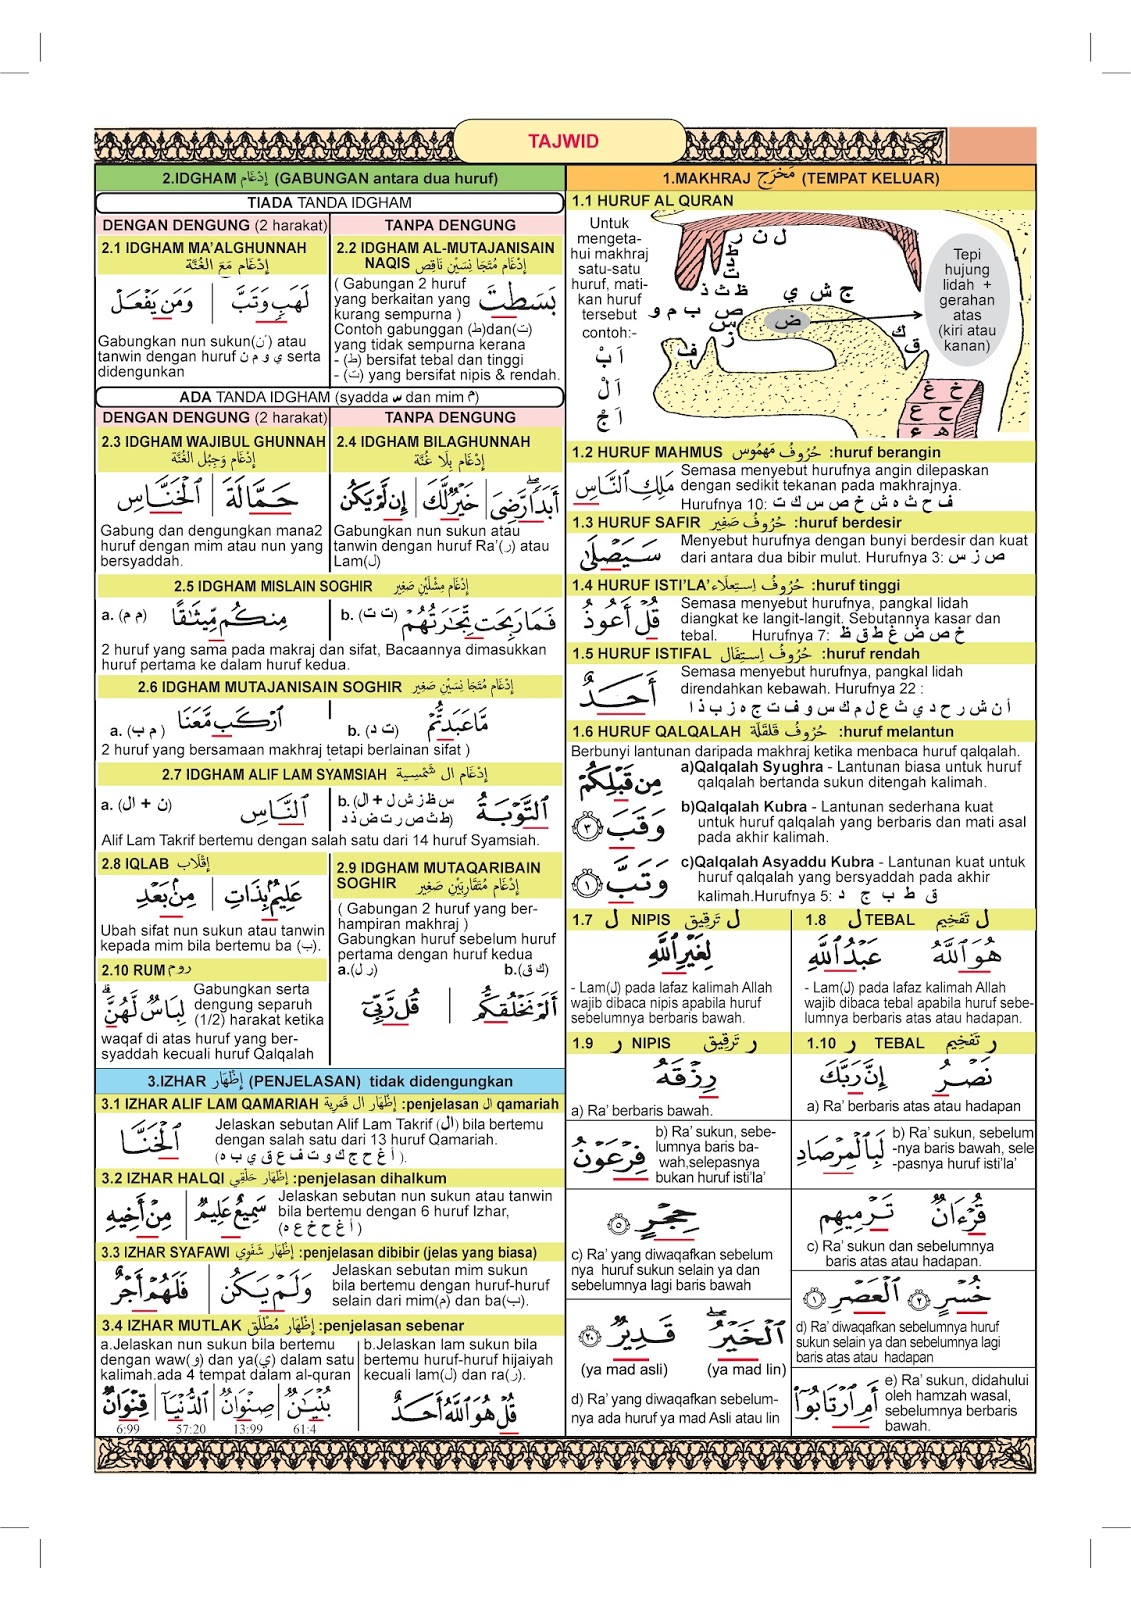 TAJWID
2.IDGHAM إِدْغَام (GABUNGAN antara dua huruf)
TIADA TANDA IDGHAM
DENGAN DENGUNG (2 harakat)
2.1 IDGHAM MA'ALGHUNNAH
إِدْغَام مَعَ الغُنَّة
وَمَن يَفْعَلْ | لَهَبٍ وَتَبَّ
Gabungkan nun sukun(نْ) atau
tanwin dengan huruf ي و م ن serta
didengunkan
TANPA DENGUNG
2.2 IDGHAM AL-MUTAJANISAIN
NAQIS إِدْغَام مُتَجَانِسَيْن نَاقِص
( Gabungan 2 huruf
yang berkaitan yang
kurang sempurna )
بَسَطتَ
Contoh gabunggan (ط)dan(ت)
yang tidak sempurna kerana
- (ط) bersifat tebal dan tinggi
- (ت) yang bersifat nipis & rendah.
ADA TANDA IDGHAM (syadda س dan mim م)
DENGAN DENGUNG (2 harakat)
2.3 IDGHAM WAJIBUL GHUNNAH
إِدْغَام وَجِبُل الغُنَّة
ٱلْخَنَّاسِ | حَمَّالَةَ
Gabung dan dengungkan mana2
huruf dengan mim atau nun yang
bersyaddah.
TANPA DENGUNG
2.4 IDGHAM BILAGHUNNAH
إِدْغَام بِلَا غُنَّة
إِن لَّمْ يَكُن | خَيْرٌ لَّكَ | أَبَدًا رَّضِيَ
Gabungkan nun sukun atau
tanwin dengan huruf Ra'(ر) atau
Lam(ل)
2.5 IDGHAM MISLAIN SOGHIR إِدْغَام مِثْلَيْن صَغِير
a. (م م) مِنكُم مِّيثَٰقًا
b. (ت ت) فَمَا رَبِحَت تِّجَٰرَتُهُمْ
2 huruf yang sama pada makraj dan sifat, Bacaannya dimasukkan
huruf pertama ke dalam huruf kedua.
2.6 IDGHAM MUTAJANISAIN SOGHIR إِدْغَام مُتَجَانِسَيْن صَغِير
a. (ب م) ٱرْكَب مَّعَنَا
b. (د ت) مَّا عَبَدتُّمْ
2 huruf yang bersamaan makhraj tetapi berlainan sifat )
2.7 IDGHAM ALIF LAM SYAMSIAH إِدْغَام ال شَمْسِية
a. (ال + ن) ٱلنَّاسِ
b. (ال + س ظ ز ش ل
ط ث ص ر ت ض ذ د) ٱلتَّوْبَةُ
Alif Lam Takrif bertemu dengan salah satu dari 14 huruf Syamsiah.
2.8 IQLAB إِقْلَاب
مِنۢ بَعْدِ | عَلِيمٌۢ بِذَاتِ
Ubah sifat nun sukun atau tanwin
kepada mim bila bertemu ba (ب).
2.10 RUM روم
لِبَاسٌ لَّهُنَّ
Gabungkan serta
dengung separuh
(1/2) harakat ketika
waqaf di atas huruf yang ber-
syaddah kecuali huruf Qalqalah
2.9 IDGHAM MUTAQARIBAIN
SOGHIR إِدْغَام مُتَقَارِبَيْن صَغِير
( Gabungan 2 huruf yang ber-
hampiran makhraj )
Gabungkan huruf sebelum huruf
pertama dengan huruf kedua
a.(ل ر) b.(ق ك)
قُل رَّبِّي | أَلَمْ نَخْلُقكُّم
3.IZHAR إِظْهَار (PENJELASAN) tidak didengungkan
3.1 IZHAR ALIF LAM QAMARIAH إِظْهَار ال قَمَرِية :penjelasan ال qamariah
ٱلْخَنَّا
Jelaskan sebutan Alif Lam Takrif (ال) bila bertemu
dengan salah satu dari 13 huruf Qamariah.
( أ غ ح ج ك و ت ف ع ق ي ب ه ).
3.2 IZHAR HALQI إِظْهَار حَلْقِي :penjelasan dihalkum
مِنْ أَخِيهِ | سَمِيعٌ عَلِيمٌ
Jelaskan sebutan nun sukun atau tanwin
bila bertemu dengan 6 huruf Izhar,
(أ غ ح خ ع ه)
3.3 IZHAR SYAFAWI إِظْهَار شَفَوِي :penjelasan dibibir (jelas yang biasa)
فَلَهُمْ أَجْرٌ | وَلَمْ يَكُن
Jelaskan sebutan mim sukun
bila bertemu dengan huruf-huruf
selain dari mim(م) dan ba(ب).
3.4 IZHAR MUTLAK إِظْهَار مُطْلَق :penjelasan sebenar
a.Jelaskan nun sukun bila bertemu
dengan waw(و) dan ya(ي) dalam satu
kalimah.ada 4 tempat dalam al-quran
قِنْوَانٌ | ٱلدُّنْيَا | صِنْوَانٌ | بُنْيَٰنٌ
6:99 57:20 13:99 61:4
b.Jelaskan lam sukun bila
bertemu huruf-huruf hijaiyah
kecuali lam(ل) dan ra(ر).
قُلْ هُوَ ٱللَّهُ أَحَدٌ
1.MAKHRAJ مَخْرَج (TEMPAT KELUAR)
1.1 HURUF AL QURAN
Untuk
mengeta-
hui makhraj
satu-satu
huruf, mati-
kan huruf
tersebut
contoh:-
اَ بْ
اَ لْ
اَ جْ
ل ن ر
ط
د
ت
ظ ث ذ
ج ش ي
ص
س
ز
و م ب
ف
ض
ك
ق
غ خ
ع ح
ء ه
Tepi
hujung
lidah +
gerahan
atas
(kiri atau
kanan)
1.2 HURUF MAHMUS حُرُوفُ مَهْمُوس :huruf berangin
مَلِكِ ٱلنَّاسِ
Semasa menyebut hurufnya angin dilepaskan
dengan sedikit tekanan pada makhrajnya.
Hurufnya 10: ف ح ث ه ش خ ص س ك ت
1.3 HURUF SAFIR حُرُوفُ صَفِير :huruf berdesir
سَيَصْلَىٰ
Menyebut hurufnya dengan bunyi berdesir dan kuat
dari antara dua bibir mulut. Hurufnya 3: ص ز س
1.4 HURUF ISTI'LA' حُرُوفُ اِستِعلَاء :huruf tinggi
قُلْ أَعُوذُ
Semasa menyebut hurufnya, pangkal lidah
diangkat ke langit-langit. Sebutannya kasar dan
tebal. Hurufnya 7: خ ص ض غ ط ق ظ
1.5 HURUF ISTIFAL حُرُوفُ اِستِفَال :huruf rendah
أَحَدٌ
Semasa menyebut hurufnya, pangkal lidah
direndahkan kebawah. Hurufnya 22 :
أ ن ش ر ح د ي ث ع ل م ك س و ف ت ج ه ز ب ذ ا
1.6 HURUF QALQALAH حُرُوفُ قَلقَلَة :huruf melantun
Berbunyi lantunan daripada makhraj ketika menbaca huruf qalqalah.
مِن قَبْلِكُمْ
a)Qalqalah Syughra - Lantunan biasa untuk huruf
qalqalah bertanda sukun ditengah kalimah.
وَقَبَ ٣
b)Qalqalah Kubra - Lantunan sederhana kuat
untuk huruf qalqalah yang berbaris dan mati asal
pada akhir kalimah.
وَتَبَّ ١
c)Qalqalah Asyaddu Kubra - Lantunan kuat untuk
huruf qalqalah yang bersyaddah pada akhir
kalimah.Hurufnya 5: ق ط ب ج د
1.7 ل NIPIS ل تَرْقِيق
لِغَيْرِ ٱللَّهِ
- Lam(ل) pada lafaz kalimah Allah
wajib dibaca nipis apabila huruf
sebelumnya berbaris bawah.
1.8 ل TEBAL ل تَفْخِيم
عَبْدُ ٱللَّهِ هُوَ ٱللَّهُ
- Lam(ل) pada lafaz kalimah Allah
wajib dibaca tebal apabila huruf sebe-
lumnya berbaris atas atau hadapan.
1.9 ر NIPIS ر تَرْقِيق
رِزْقَهُ
a) Ra' berbaris bawah.
فِرْعَوْنُ
b) Ra' sukun, sebe-
lumnya baris ba-
wah,selepasnya
bukan huruf isti'la'
حِجْرٍ ٥
c) Ra' yang diwaqafkan sebelum
nya huruf sukun selain ya dan
sebelumnya lagi baris bawah
قَدِيرٌ ٢٠ ٱلْخَيْرُ
(ya mad asli) (ya mad lin)
d) Ra' yang diwaqafkan sebelum-
nya ada huruf ya mad Asli atau lin
1.10 ر TEBAL ر تَفْخِيم
إِنَّ رَبَّكَ نَصْرُ
a) Ra' berbaris atas atau hadapan
لَبِٱلْمِرْصَادِ
b) Ra' sukun, sebelum
-nya baris bawah, sele
-pasnya huruf isti'la'
تَرْمِيهِم قُرْءَانٌ
c) Ra' sukun dan sebelumnya
baris atas atau hadapan.
ٱلْعَصْرِ ١ خُسْرٍ ٢
d) Ra' diwaqafkan sebelumnya huruf
sukun selain ya dan sebelumnya lagi
baris atas atau hadapan
أَمِ ٱرْتَابُوٓا۟
e) Ra' sukun, didahului
oleh hamzah wasal,
sebelumnya berbaris
bawah.